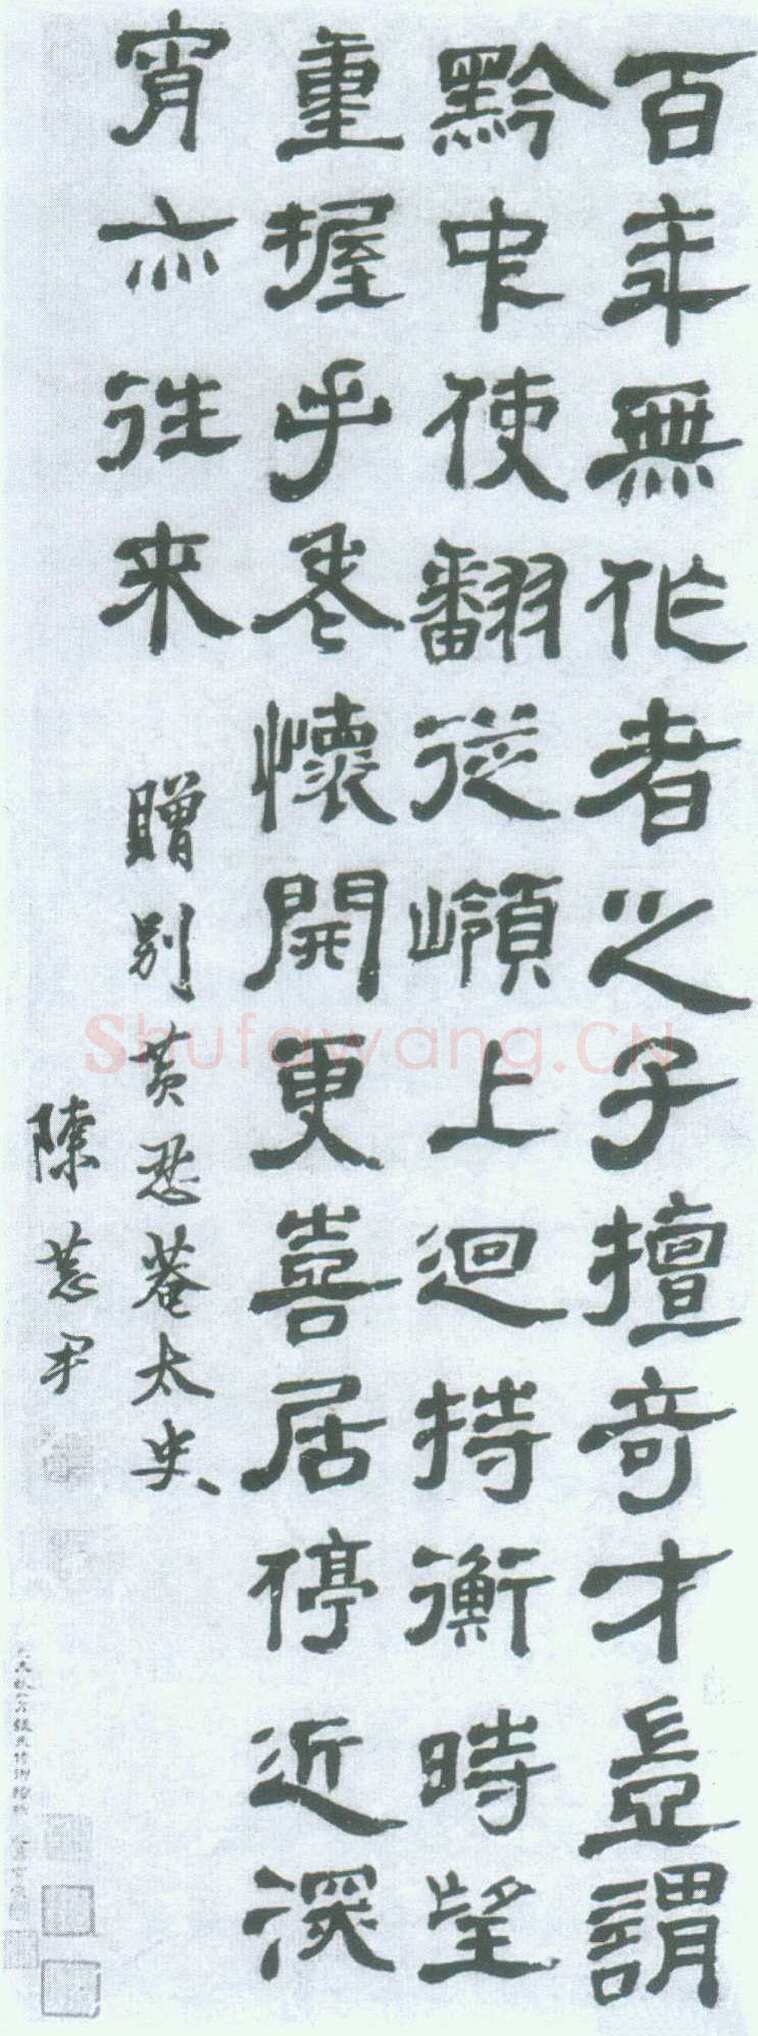 百年無作者之子擅奇才豈謂
黔中使翻從嶺上迴持衡時望
重握手老懷開更喜居停近深
宵亦往来
贈別黃忍菴太史
陳恭尹
Shufawang.CN